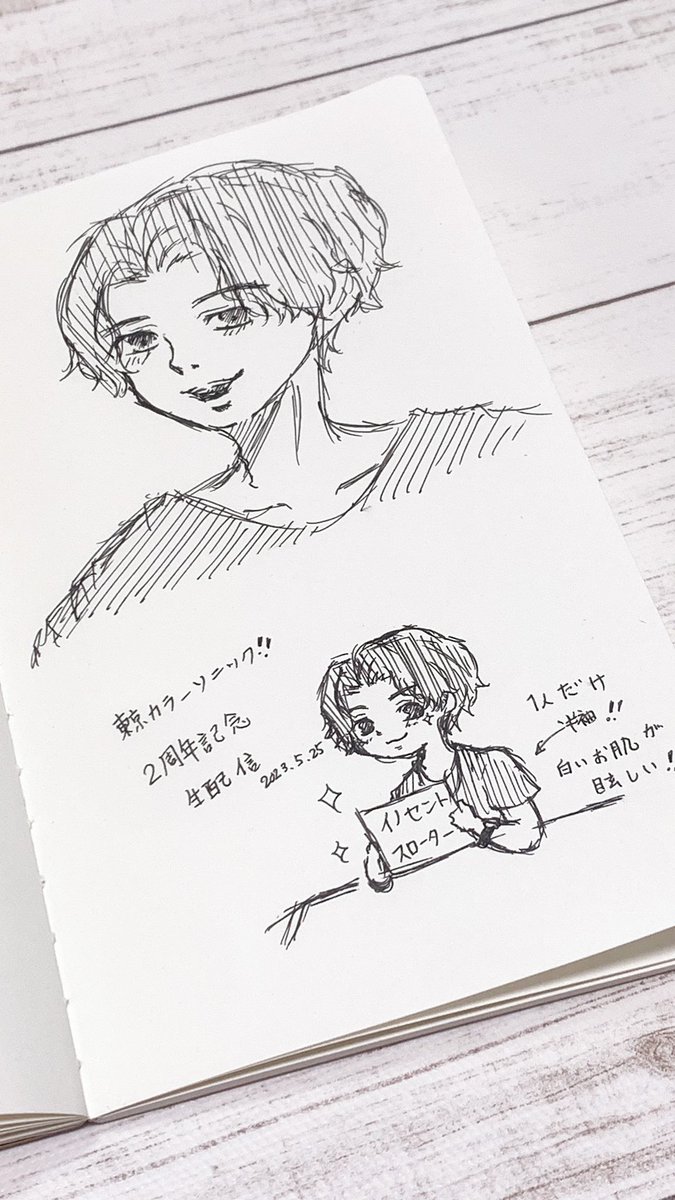 東京カラーソニック!!
2周年記念
生配信
2023.5.25
イノセント
スローター
1人だけ
半袖!!
白いお肌が
眩しい!!